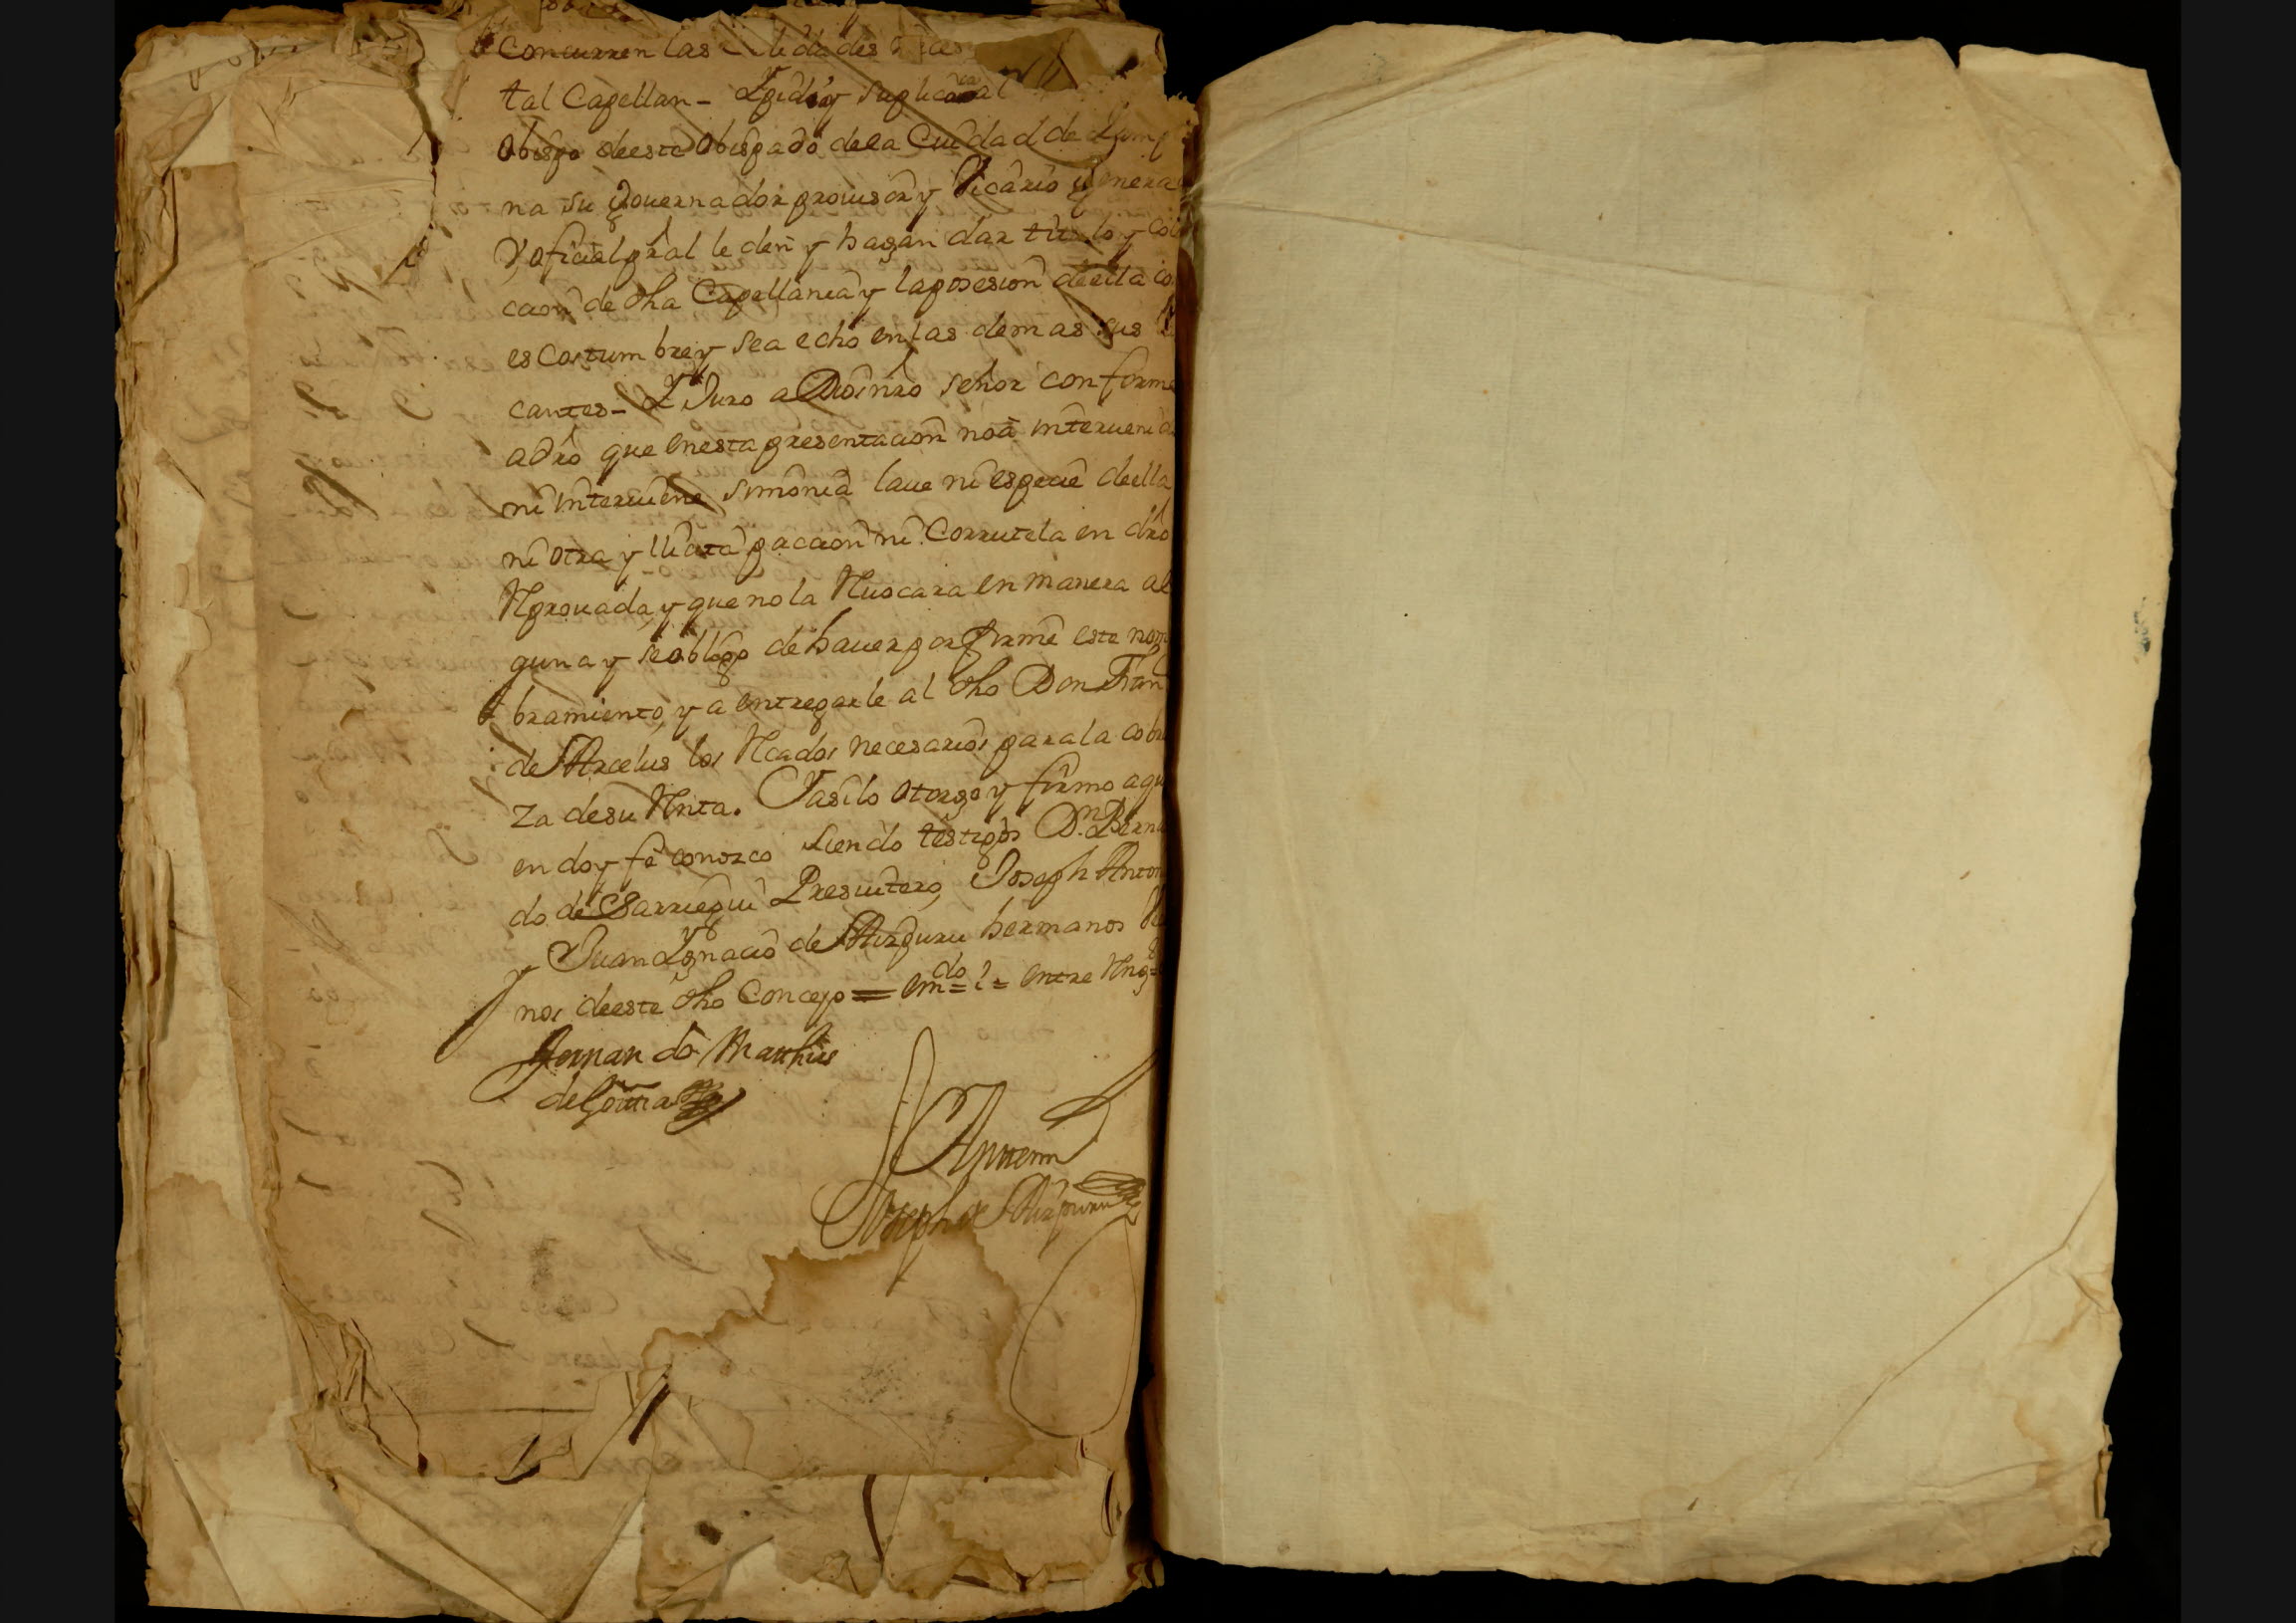 concurren las lidades
tal Capellan - Y pidio y suplico al
Obispo deeste Obispado dela Ciudad de Pamp
na su Gouernador prouisor y Vicario Genera
y oficial pral le den y hagan dar titulo y col
caon de dha Capellania y la posesion deella co
es Costumbre y sea echo en las demas sus
cantes - Y Juro a Dios nro señor conforme
a dro que en esta presentacion no a interueni
ni interuiene simonia laue ni especie deella
ni otra y llicita paccion ni Corrutela en dro
Rprouada, y que no la Reuocara en manera al
guna y se obligo de hauer por firme este nom
bramiento, y a entregarle al dho Don Fran
de Arcelus los Rcados necesarios para la cobr
za de su Renta. Y asi lo otorgo y firmo a qu
en doy fe conozco siendo testigos Dn. Berna
do de Barriegui Presuitero, Joseph Anton
y Juan Ygnacio de Aizpuru hermanos
nos deeste dho Concejo = emdo = l = entre Rng =
Fernan do Mathias
de Goitia
Antemi
Joseph de Aizpuru